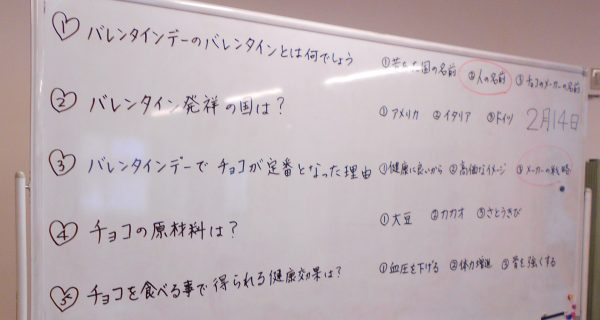 ① バレンタインデーのバレンタインとは何でしょう ① 昔あった国の名前 ② 人の名前 ③ チョコのメーカーの名前
② バレンタイン発祥の国は? ① アメリカ ② イタリア ③ ドイツ
2月14日
③ バレンタインデーでチョコが定番となった理由 ① 健康に良いから ② 高価なイメージ ③ メーカーの戦略
④ チョコの原材料は? ① 大豆 ② カカオ ③ さとうきび
⑤ チョコを食べる事で得られる健康効果は? ① 血圧を下げる ② 体力増進 ③ 骨を強くする